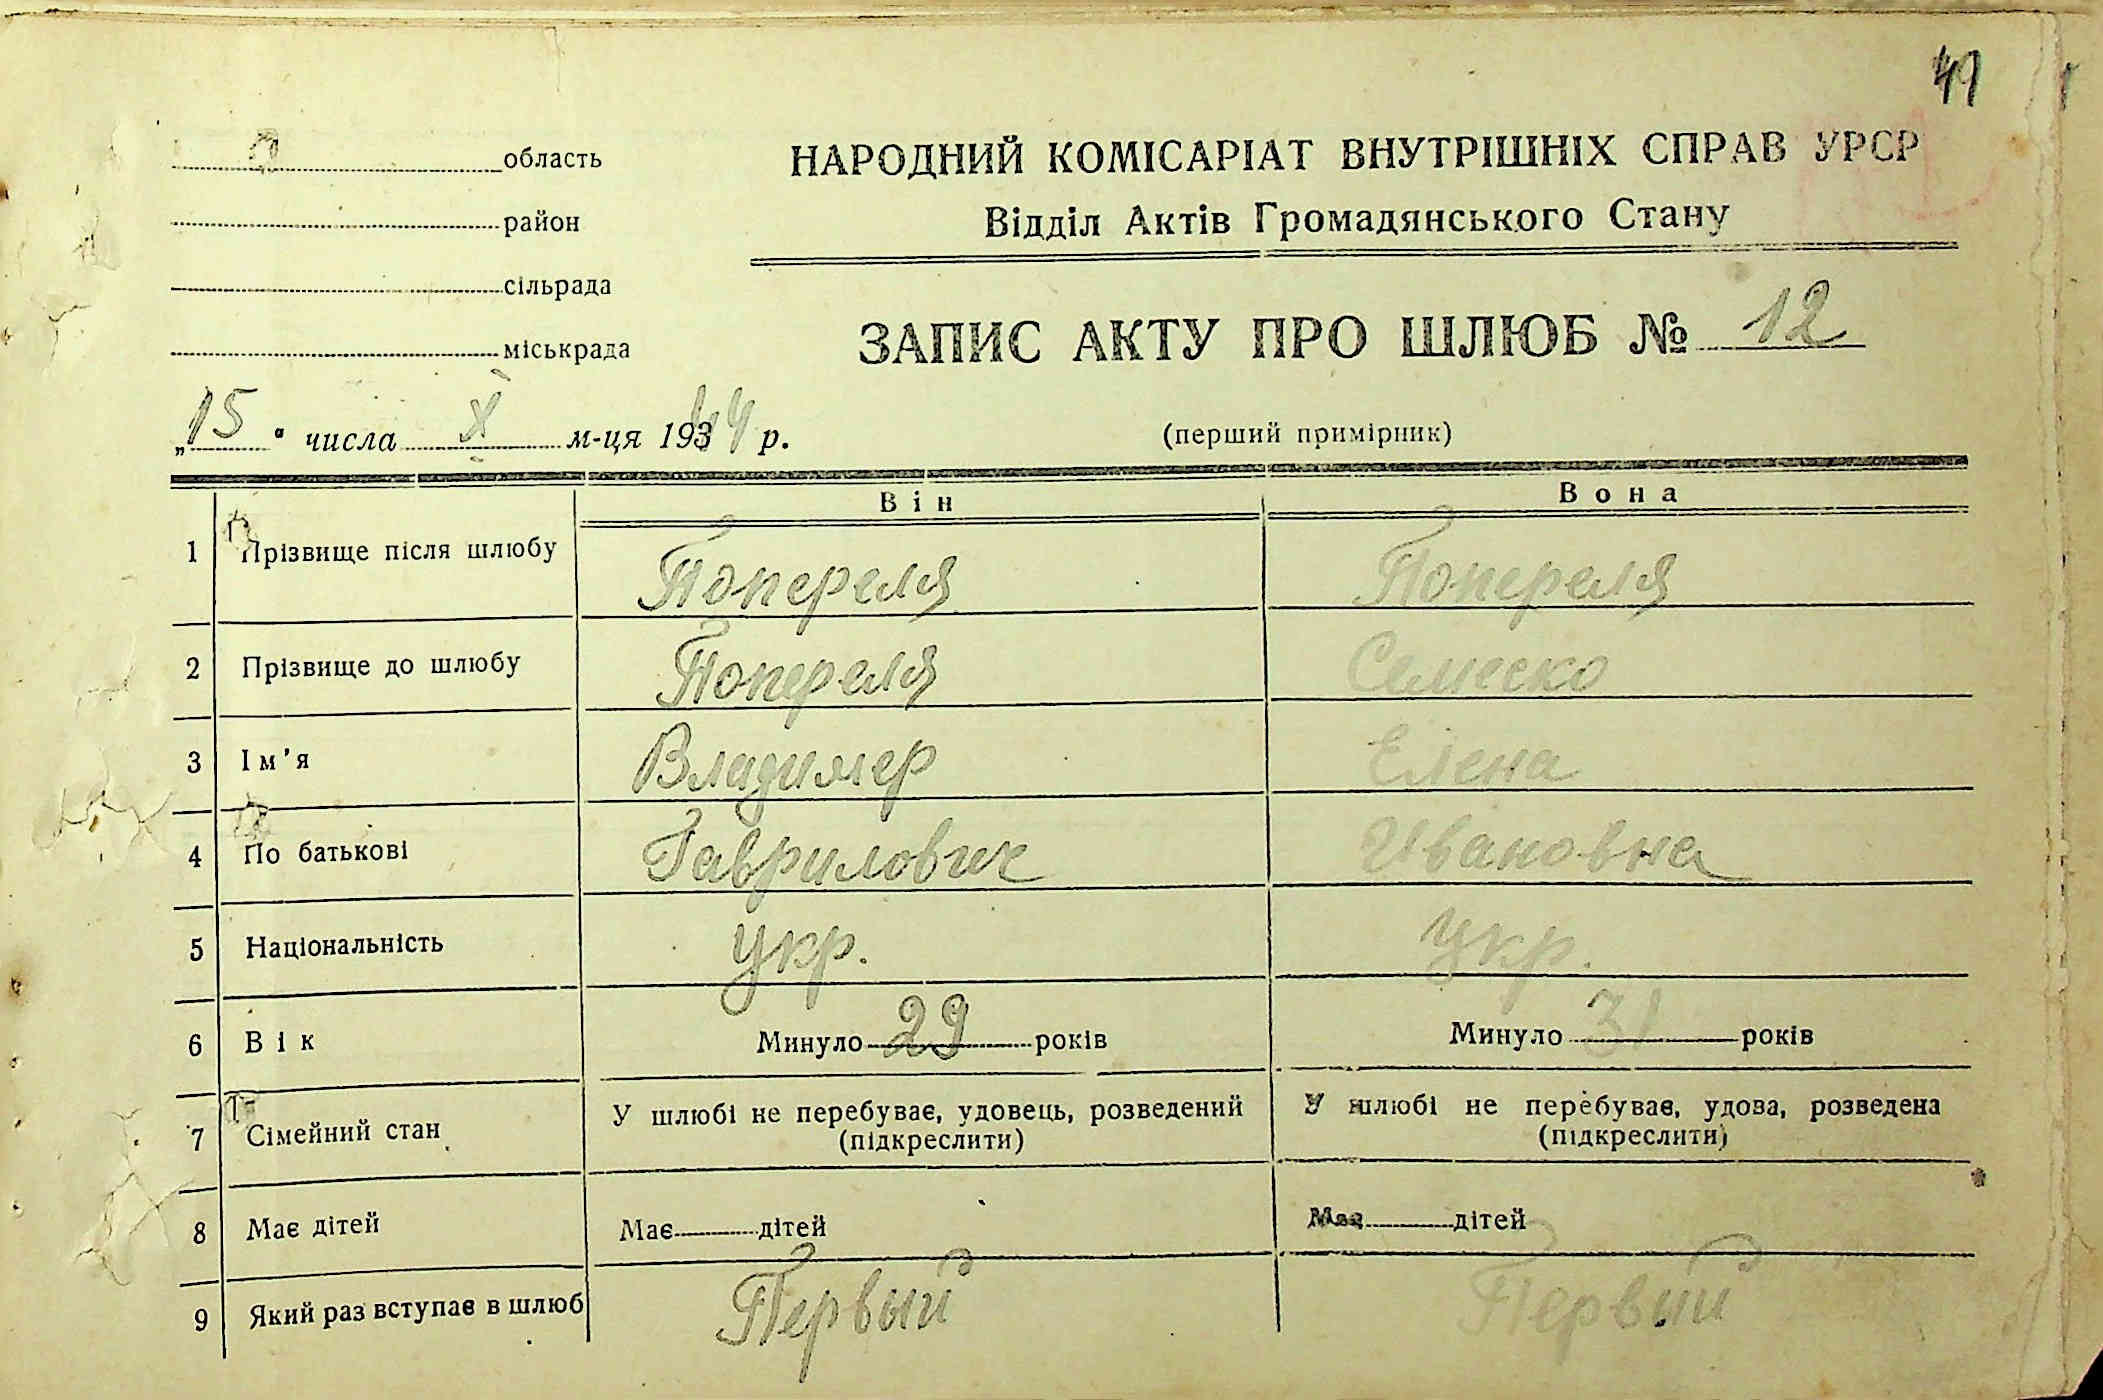 41
область
район
сільрада
міськрада
НАРОДНИЙ КОМІСАРІАТ ВНУТРІШНІХ СПРАВ УРСР
Відділ Актів Громадянського Стану
ЗАПИС АКТУ ПРО ШЛЮБ № 12
„15" числа X м-ця 1944 р.
(перший примірник)
Він Вона
1 Прізвище після шлюбу Попереля Попереля
2 Прізвище до шлюбу Попереля
3 Ім'я Владимер Елена
4 По батькові Гаврилович Ивановна
5 Національність укр. укр.
6 Вік Минуло 29 років Минуло 31 років
7 Сімейний стан У шлюбі не перебуває, удовець, розведений У шлюбі не перебуває, удова, розведена
(підкреслити) (підкреслити)
8 Має дітей Має дітей Має дітей
9 Який раз вступає в шлюб Первый Первый